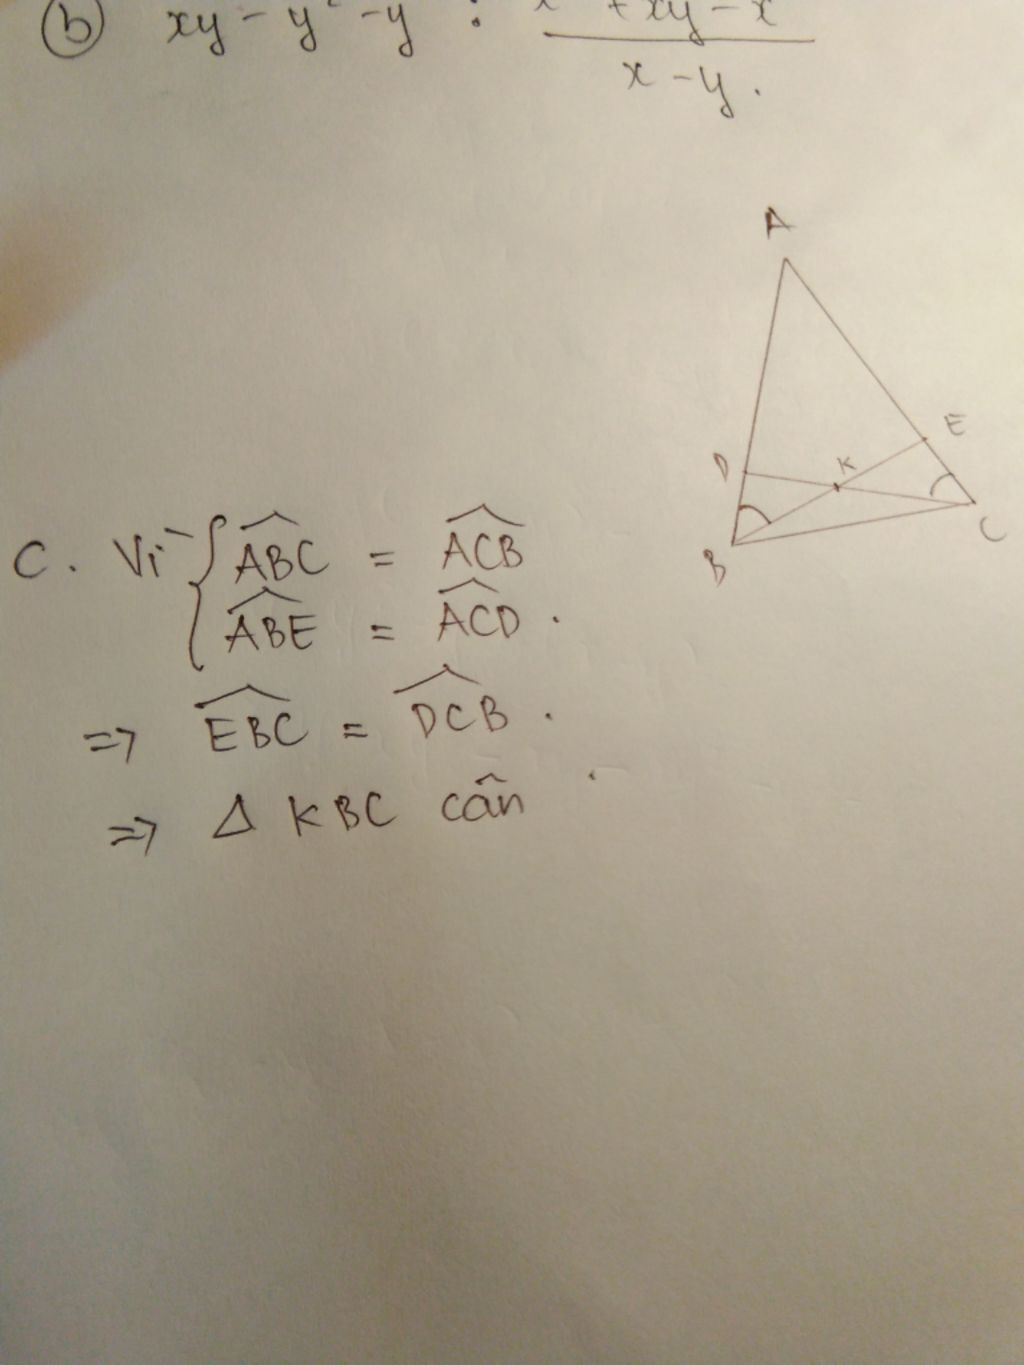 b xy - y² - y : + xy - x
x - y.
A
E
D K
C
B
C. Vì { ABC = ACB
ABE = ACD.
=> EBC = DCB.
=> Δ KBC cân